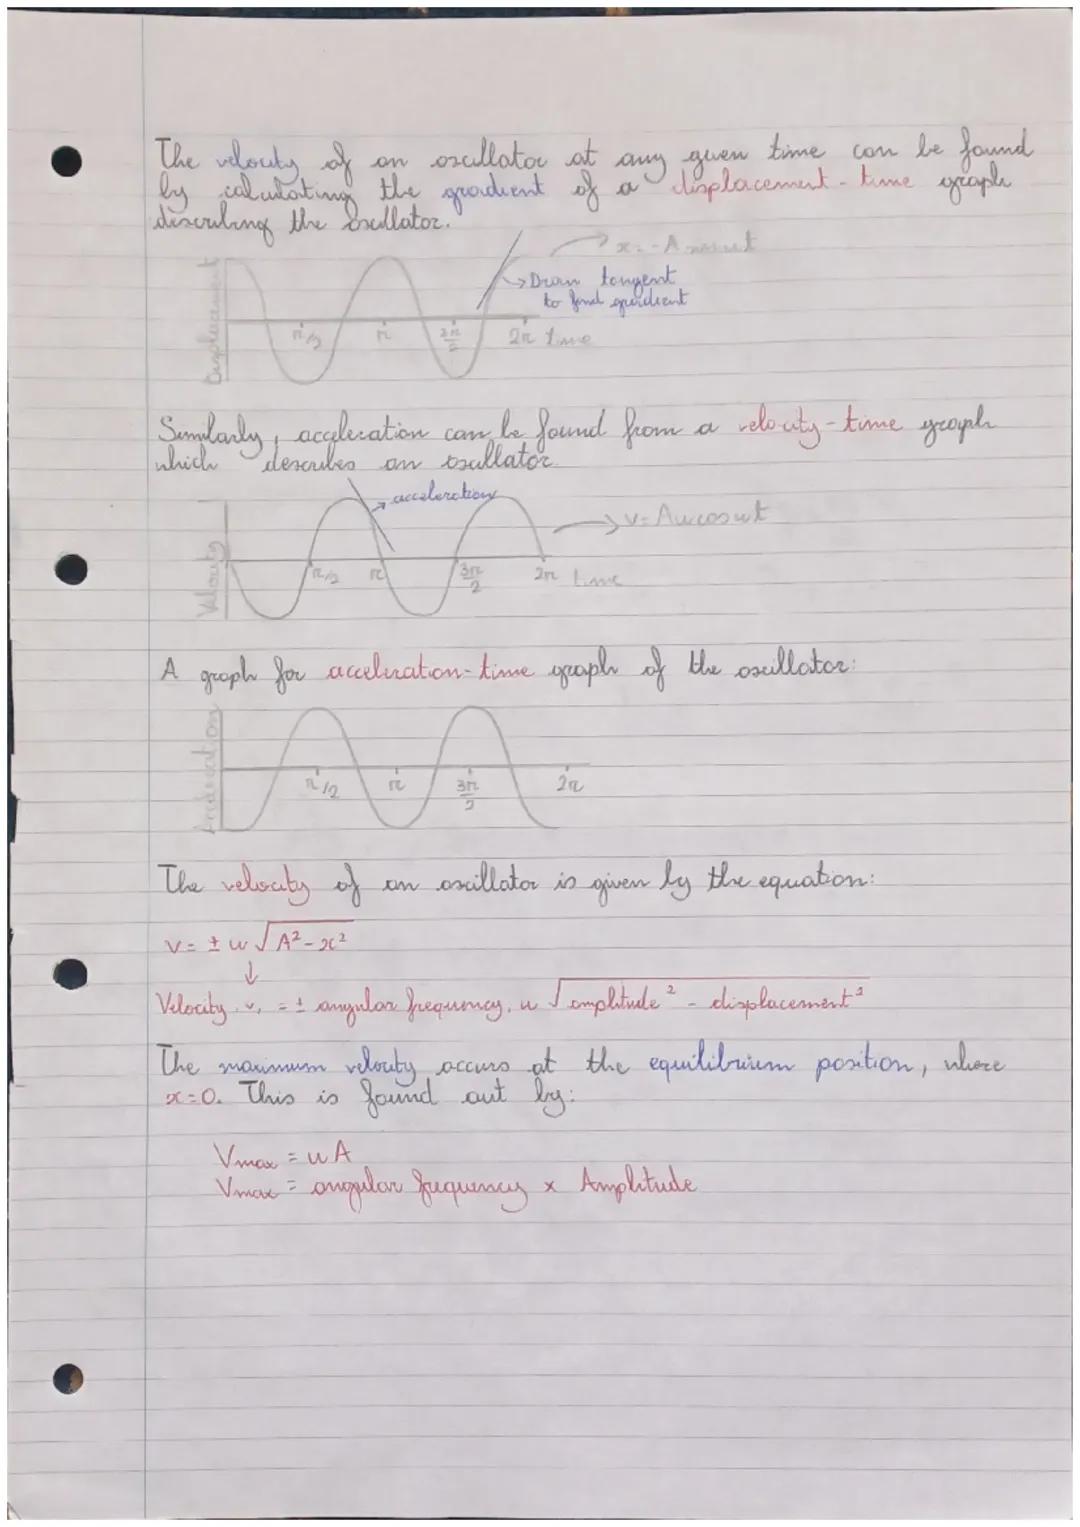 The velocity of an oscillator at any given time can be found
by calculating the gradient of a displacement-time graph
describing the oscillator.
x=-A
→Draw tangent
to find gradient
Displacement
π/2
π
3π/2
2π time
Similarly, acceleration can be found from a velocity-time graph
which describes an oscillator.
acceleration
v=Aωcosωt
Velocity
π/2
π
3π/2
2π time
A graph for acceleration-time graph of the oscillator:
Acceleration
π/2
π
3π/2
2π
The velocity of an oscillator is given by the equation:
v=±ω√A²-x²
↓
Velocity, v, =± angular frequency, ω √amplitude² - displacement²
The maximum velocity occurs at the equilibrium position, where
x=0. This is found out by:
Vmax = ωA
Vmax = angular frequency × Amplitude